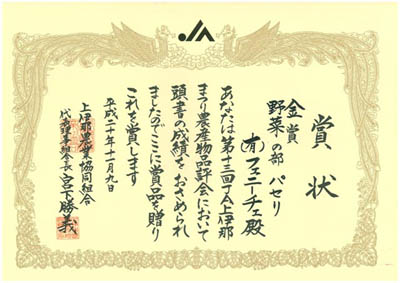 JA
賞状
金賞
野菜の部 パセリ
(有)フェニーチェ殿
あなたは第十三回JA上伊那
まつり農産物品評会において
頭書の成績をおさめられ
ましたのでここに賞品を贈り
これを賞します
平成二十年十一月九日
上伊那農業協同組合
代表理事組合長 宮下勝義